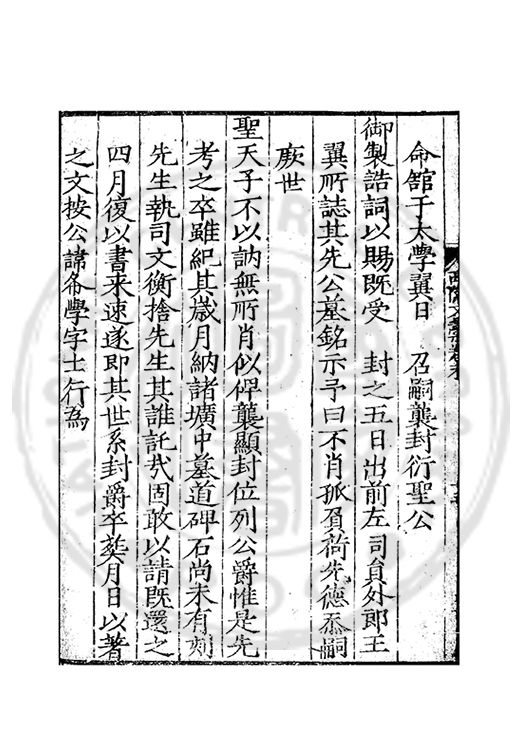 命舘于太學翼日　召嗣襲封衍聖公
御製誥詞以賜旣受　封之五日出前左司員外郎王
翼所誌其先公墓銘示予曰不肖孤負荷先德忝嗣
厥世
聖天子不以訥無所肖似俾襲顯封位列公爵惟是先
考之卒雖紀其歲月納諸壙中墓道碑石尚未有刻
先生執司文衡捨先生其誰託㦲固敢以請旣還之
四月復以書來速遂即其世系封爵卒葬月日以著
之文按公諱希學字士行爲